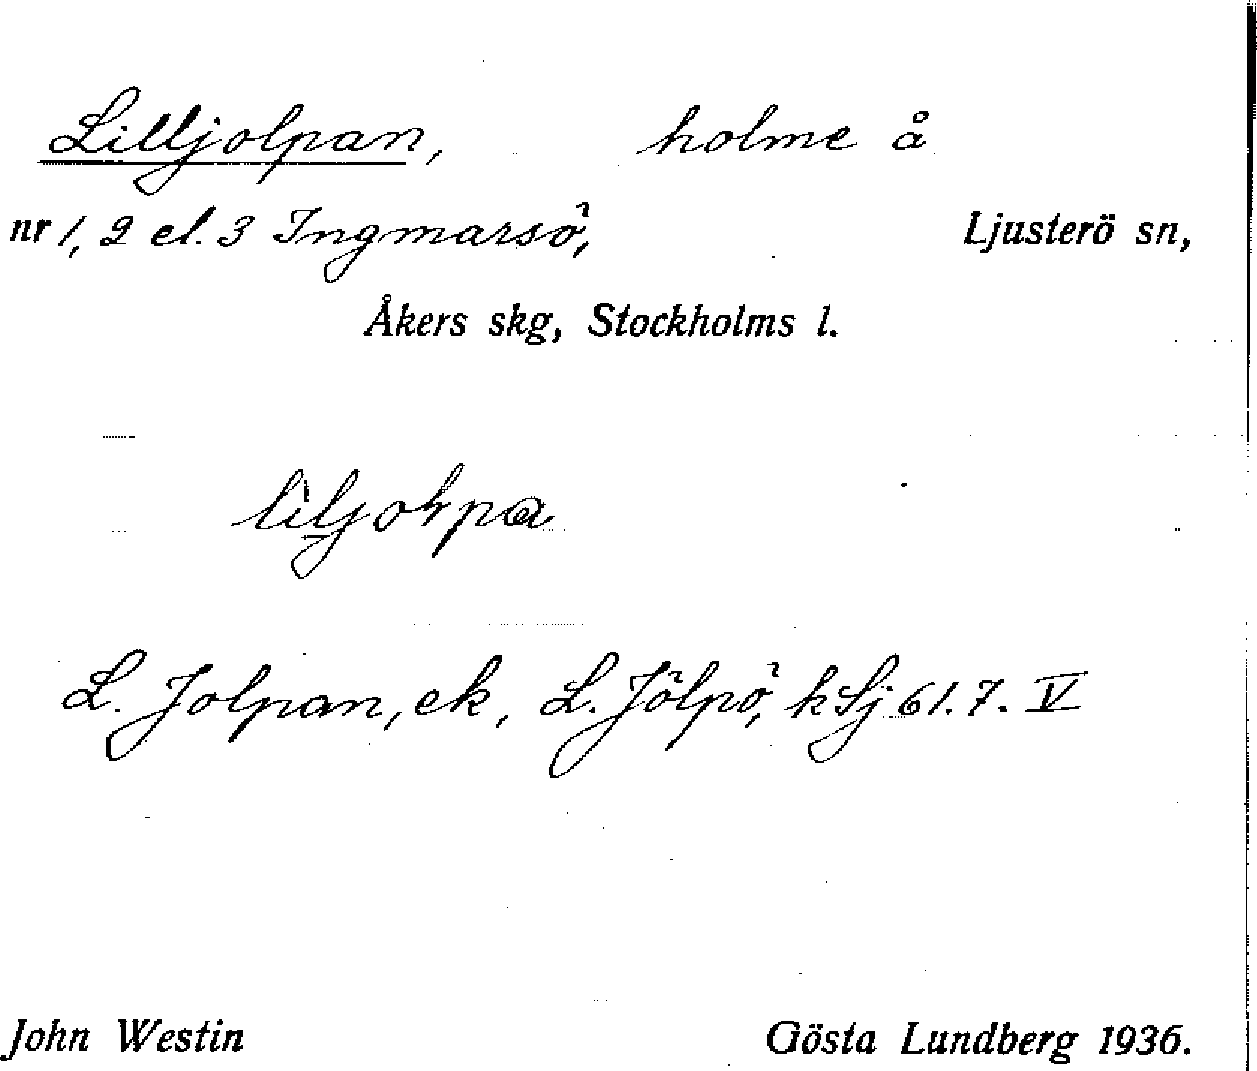 Lilljolpan, holme å
nr 1, 2 el. 3 Ingmarsö, Ljusterö sn,
Åkers skg, Stockholms l.
L. Jolpan, ek, L. Jölpö, kSj 61.7. V
John Westin Gösta Lundberg 1936.